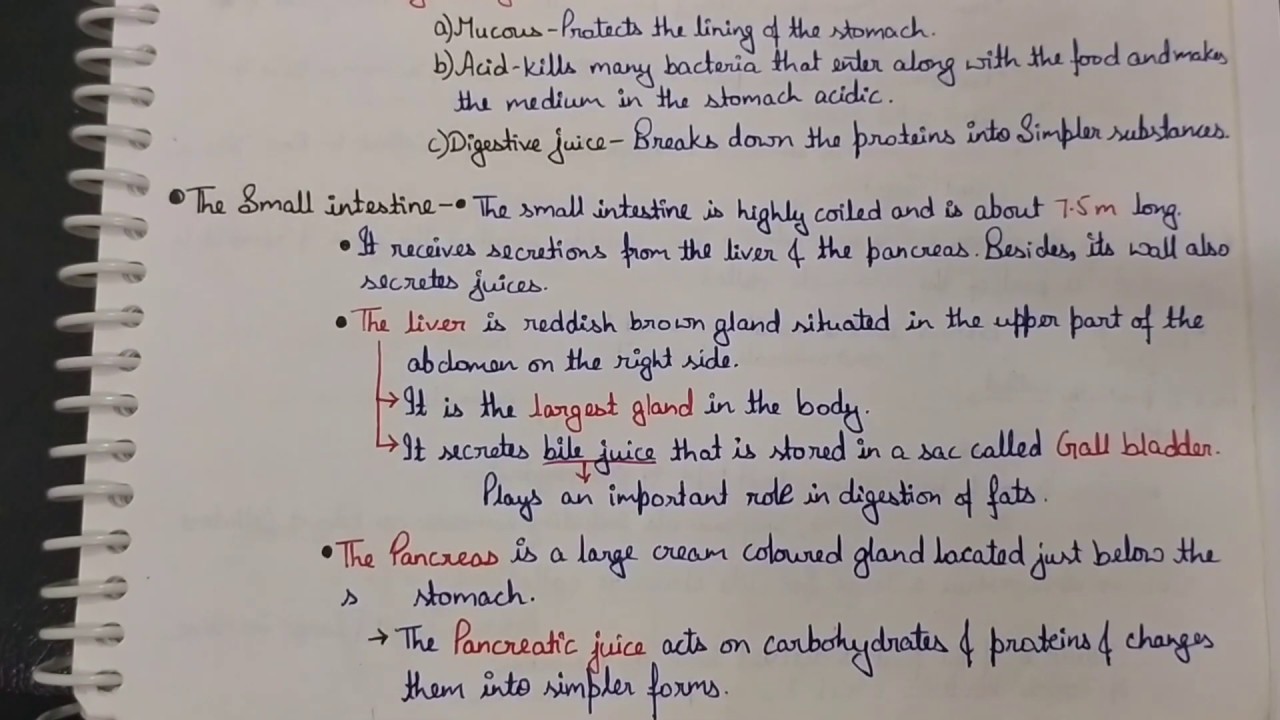 a) Mucous - Protects the lining of the stomach.
b) Acid - kills many bacteria that enter along with the food and makes
the medium in the stomach acidic.
c) Digestive juice - Breaks down the proteins into Simpler substances.
• The Small intestine - • The small intestine is highly coiled and is about 7.5m long.
• It receives secretions from the liver & the pancreas. Besides, its wall also
secretes juices.
• The liver is reddish brown gland situated in the upper part of the
abdomen on the right side.
→ It is the largest gland in the body.
→ It secretes bile juice that is stored in a sac called Gall bladder.
Plays an important role in digestion of fats.
• The Pancreas is a large cream coloured gland lacated just below the
s stomach.
→ The Pancreatic juice acts on carbohydrates & proteins & changes
them into simpler forms.